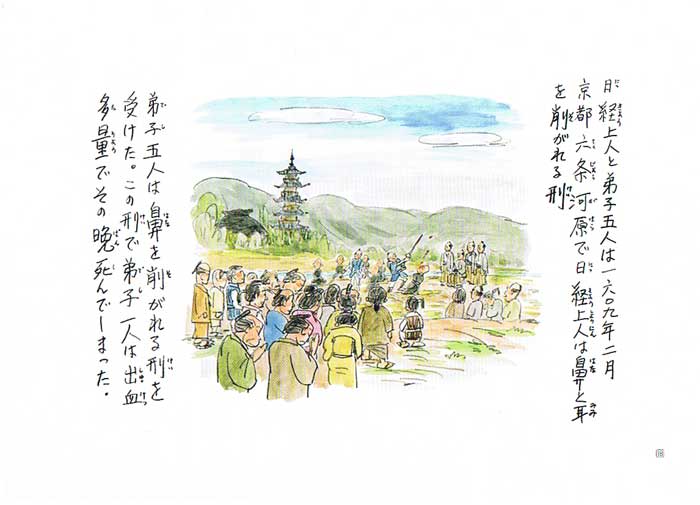 日経上人と弟子五人は一六〇九年二月
京都六条河原で日経上人は鼻と耳
を削がれる刑
弟子五人は鼻を削がれる刑を
受けた。この刑で弟子一人は出血
多量でその晩死んでしまった。